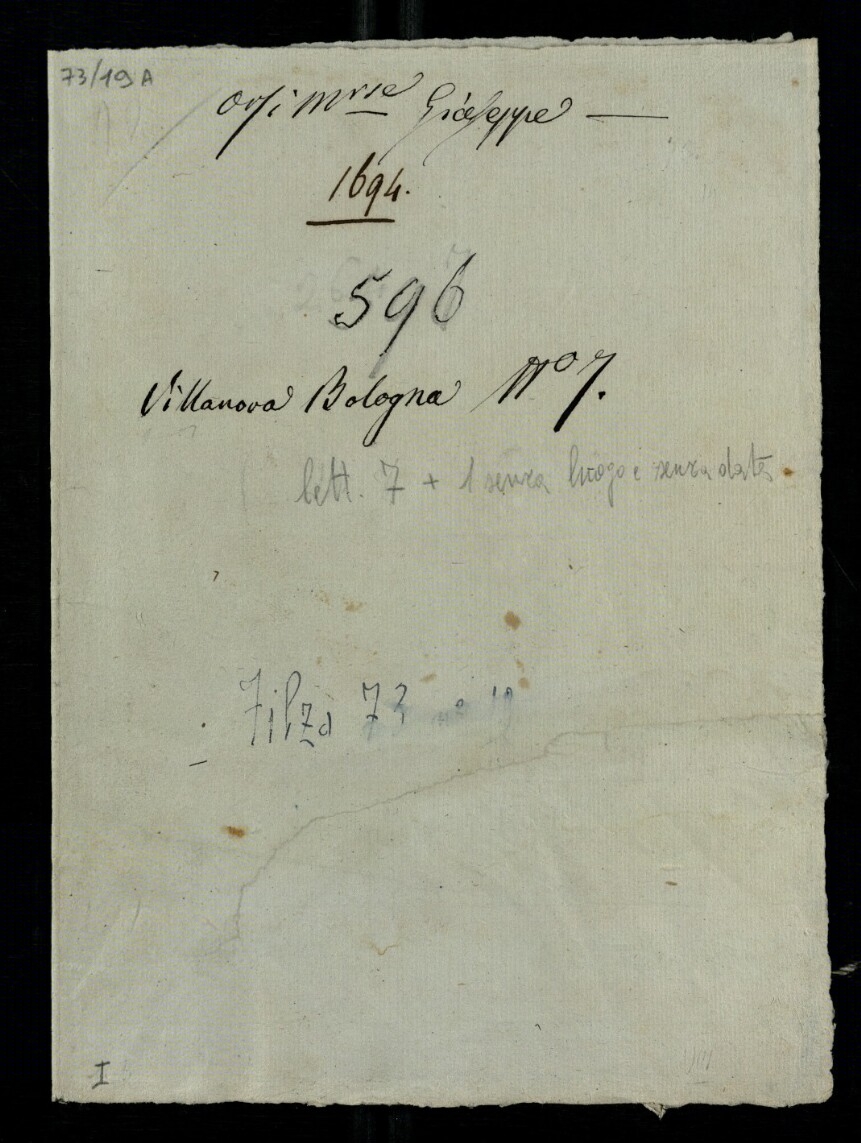 73/19 A
Orsi Mrse Giuseppe —
1694.
596
Villanova Bologna No 7.
lett. 7 + 1 senza luogo e senza data
Filza 73 no 19
I